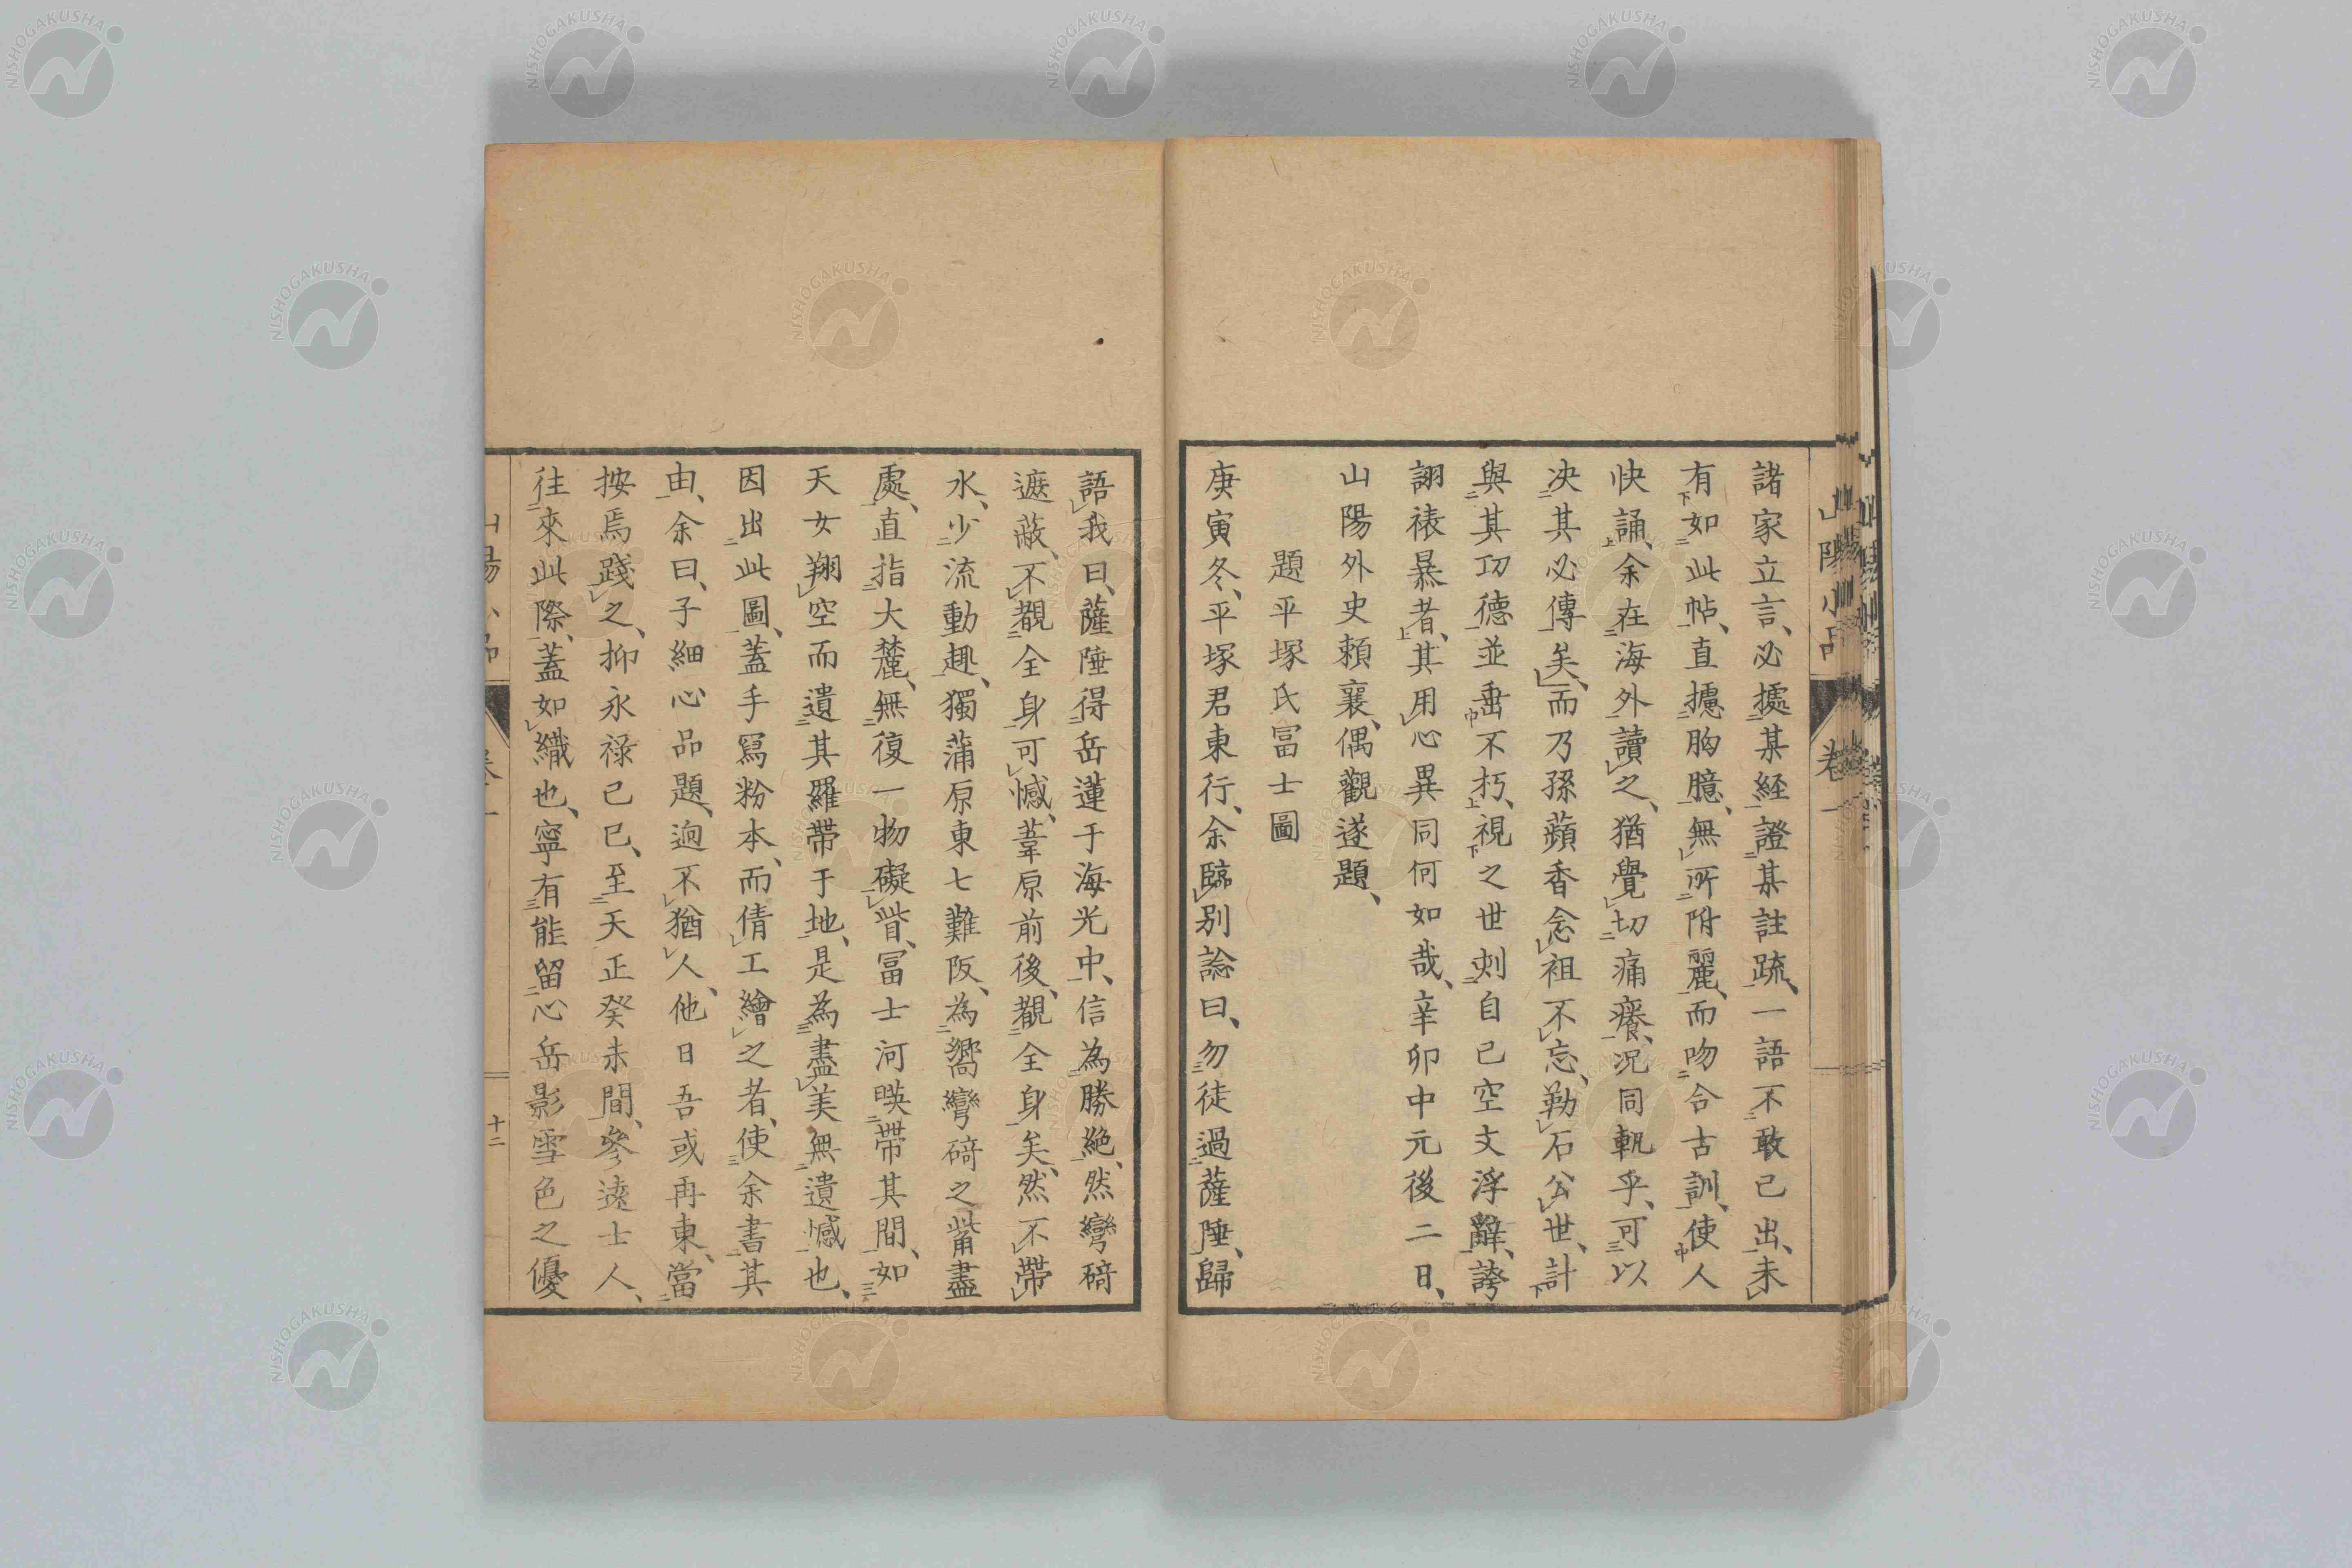 諸家立言、必據某經證某註疏、一語不敢己出、未
有如此帖、直攄胸臆、無所附麗、而吻合古訓、使人
快誦、余在海外讀之、猶覺切痛癢、況同軌乎、可以
决其必傳矣、而乃孫蘋香念祖不忘、勒石公世、計
與其功德並垂不朽、視之世刺自己空文浮辭、誇
詡裱暴者、其用心異同何如哉、辛卯中元後二日、
山陽外史賴襄、偶觀遂題、
題平塚氏冨士圖
庚寅冬、平塚君東行、余臨別諗曰、勿徒過薩埵、歸
語我曰、薩埵得岳蓮于海光中、信為勝絶、然彎碕
遮蔽、不觀全身可憾、葦原前後、觀全身矣、然不帶
水、少流動趣、獨蒲原東七難阪、為嚮彎碕之觜盡
處、直指大麓、無復一物礙眥、冨士河暎帶其間、如
天女翔空而遺其羅帶于地、是為盡美無遺憾也、
因出此圖、蓋手寫粉本、而倩工繪之者、使余書其
由、余曰、子細心品題、迥不猶人、他日吾或再東、當
按焉踐之、抑永祿己巳、至天正癸未間、參遠士人、
往來此際、蓋如織也、寧有能留心岳影雪色之優
山陽小品 卷一
十二
NISHOGAKUSHA